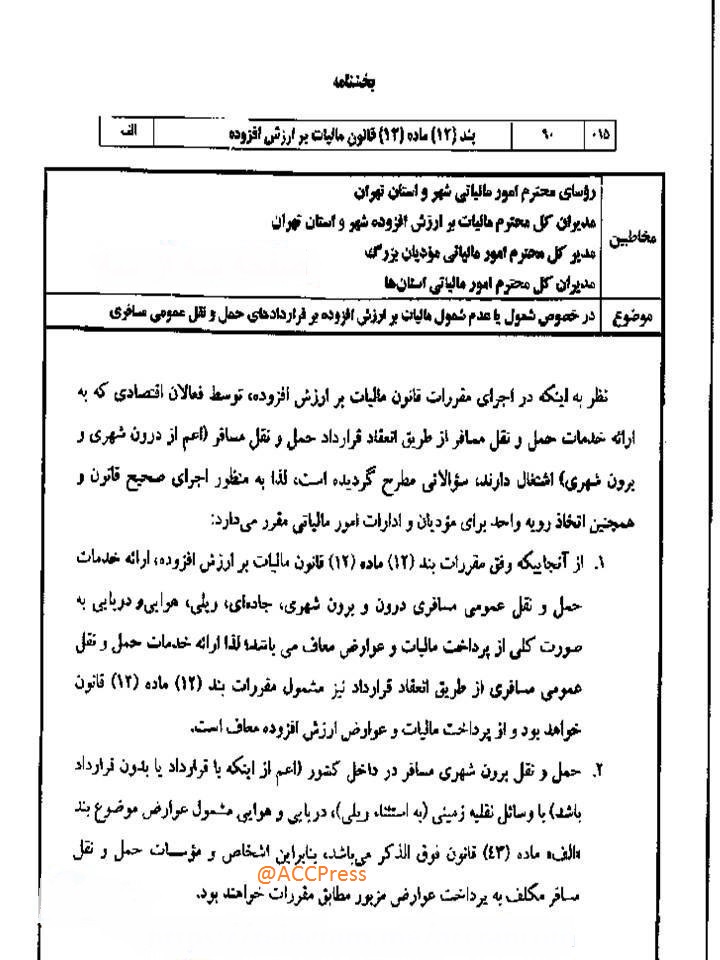 بخشنامه
۰۱۵ ۹۰ بند (۱۲) ماده (۱۲) قانون مالیات بر ارزش افزوده الف
مخاطبین
رؤسای محترم امور مالیاتی شهر و استان تهران
مدیران کل محترم مالیات بر ارزش افزوده شهر و استان تهران
مدیر کل محترم امور مالیاتی مؤدیان بزرگ
مدیران کل محترم امور مالیاتی استان‌ها
موضوع در خصوص شمول یا عدم شمول مالیات بر ارزش افزوده بر قراردادهای حمل و نقل عمومی مسافری
نظر به اینکه در اجرای مقررات قانون مالیات بر ارزش افزوده، توسط فعالان اقتصادی که به
ارائه خدمات حمل و نقل مسافر از طریق انعقاد قرارداد حمل و نقل مسافر (اعم از درون شهری و
برون شهری) اشتغال دارند، سؤالاتی مطرح گردیده است، لذا به منظور اجرای صحیح قانون و
همچنین اتخاذ رویه واحد برای مؤدیان و ادارات امور مالیاتی مقرر می‌دارد:
۱. از آنجاییکه وفق مقررات بند (۱۲) ماده (۱۲) قانون مالیات بر ارزش افزوده، ارائه خدمات
حمل و نقل عمومی مسافری درون و برون شهری، جاده‌ای، ریلی، هوایی و دریایی به
صورت کلی از پرداخت مالیات و عوارض معاف می باشد؛ لذا ارائه خدمات حمل و نقل
عمومی مسافری از طریق انعقاد قرارداد نیز مشمول مقررات بند (۱۲) ماده (۱۲) قانون
خواهد بود و از پرداخت مالیات و عوارض ارزش افزوده معاف است.
۲. حمل و نقل برون شهری مسافر در داخل کشور (اعم از اینکه با قرارداد یا بدون قرارداد
باشد) با وسائل نقلیه زمینی (به استثناء ریلی)، دریایی و هوایی مشمول عوارض موضوع بند
«الف» ماده (۴۳) قانون فوق الذکر می‌باشد، بنابراین اشخاص و مؤسسات حمل و نقل
@ACCPress
مسافر مکلف به پرداخت عوارض مزبور مطابق مقررات خواهند بود.